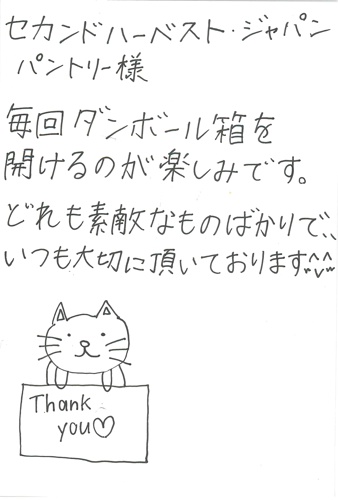 セカンドハーベスト・ジャパン
パントリー様
毎回ダンボール箱を
開けるのが楽しみです。
どれも素敵なものばかりで、
いつも大切に頂いております^^
Thank
you♡